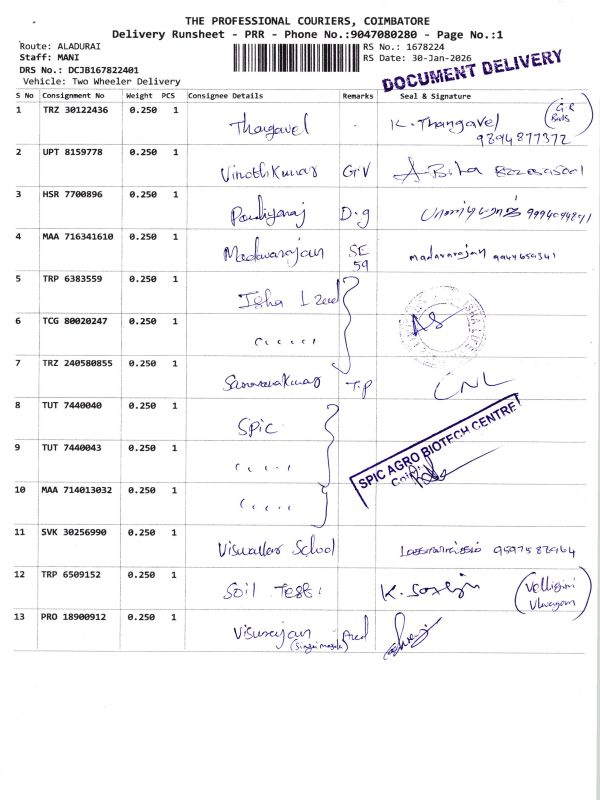 THE PROFESSIONAL COURIERS, COIMBATORE
Delivery Runsheet - PRR - Phone No.:9047080280 - Page No.:1
Route: ALADURAI
RS No.: 1678224
Staff: MANI
RS Date: 30-Jan-2026
DRS No.: DCJB167822401
Vehicle: Two Wheeler Delivery
DOCUMENT DELIVERY
S No Consignment No Weight PCS Consignee Details Remarks Seal & Signature
1 TRZ 30122436 0.250 1 Thangavel K. Thangavel
9894877372
2 UPT 8159778 0.250 1 Vinothkumar G.V
3 HSR 7700896 0.250 1 Pandiyaraj D.g
4 MAA 716341610 0.250 1 Madavarajan SE 59 madavarajan
5 TRP 6383559 0.250 1 Isha
6 TCG 80020247 0.250 1 " " " " "
7 TRZ 240580855 0.250 1 Saravanakumar T.P CNL
8 TUT 7440040 0.250 1 SPIC
SPIC AGRO BIOTECH CENTRE
9 TUT 7440043 0.250 1 " " " " "
10 MAA 714013032 0.250 1 " " " " "
11 SVK 30256990 0.250 1 School
12 TRP 6509152 0.250 1 Soil Test K.
13 PRO 18900912 0.250 1